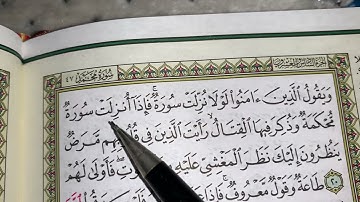 سورة محمد ٤٧
وَيَقُولُ الَّذِينَ ءَامَنُوا لَوْلَا نُزِّلَتْ سُورَةٌ ۖ فَإِذَا أُنزِلَتْ سُورَةٌ
مُّحْكَمَةٌ وَذُكِرَ فِيهَا الْقِتَالُ رَأَيْتَ الَّذِينَ فِي قُلُوبِهِم مَّرَضٌ
يَنظُرُونَ إِلَيْكَ نَظَرَ الْمَغْشِيِّ عَلَيْهِ فَأَوْلَىٰ لَهُمْ ٢٠
طَاعَةٌ وَقَوْلٌ مَّعْرُوفٌ فَإِذَا